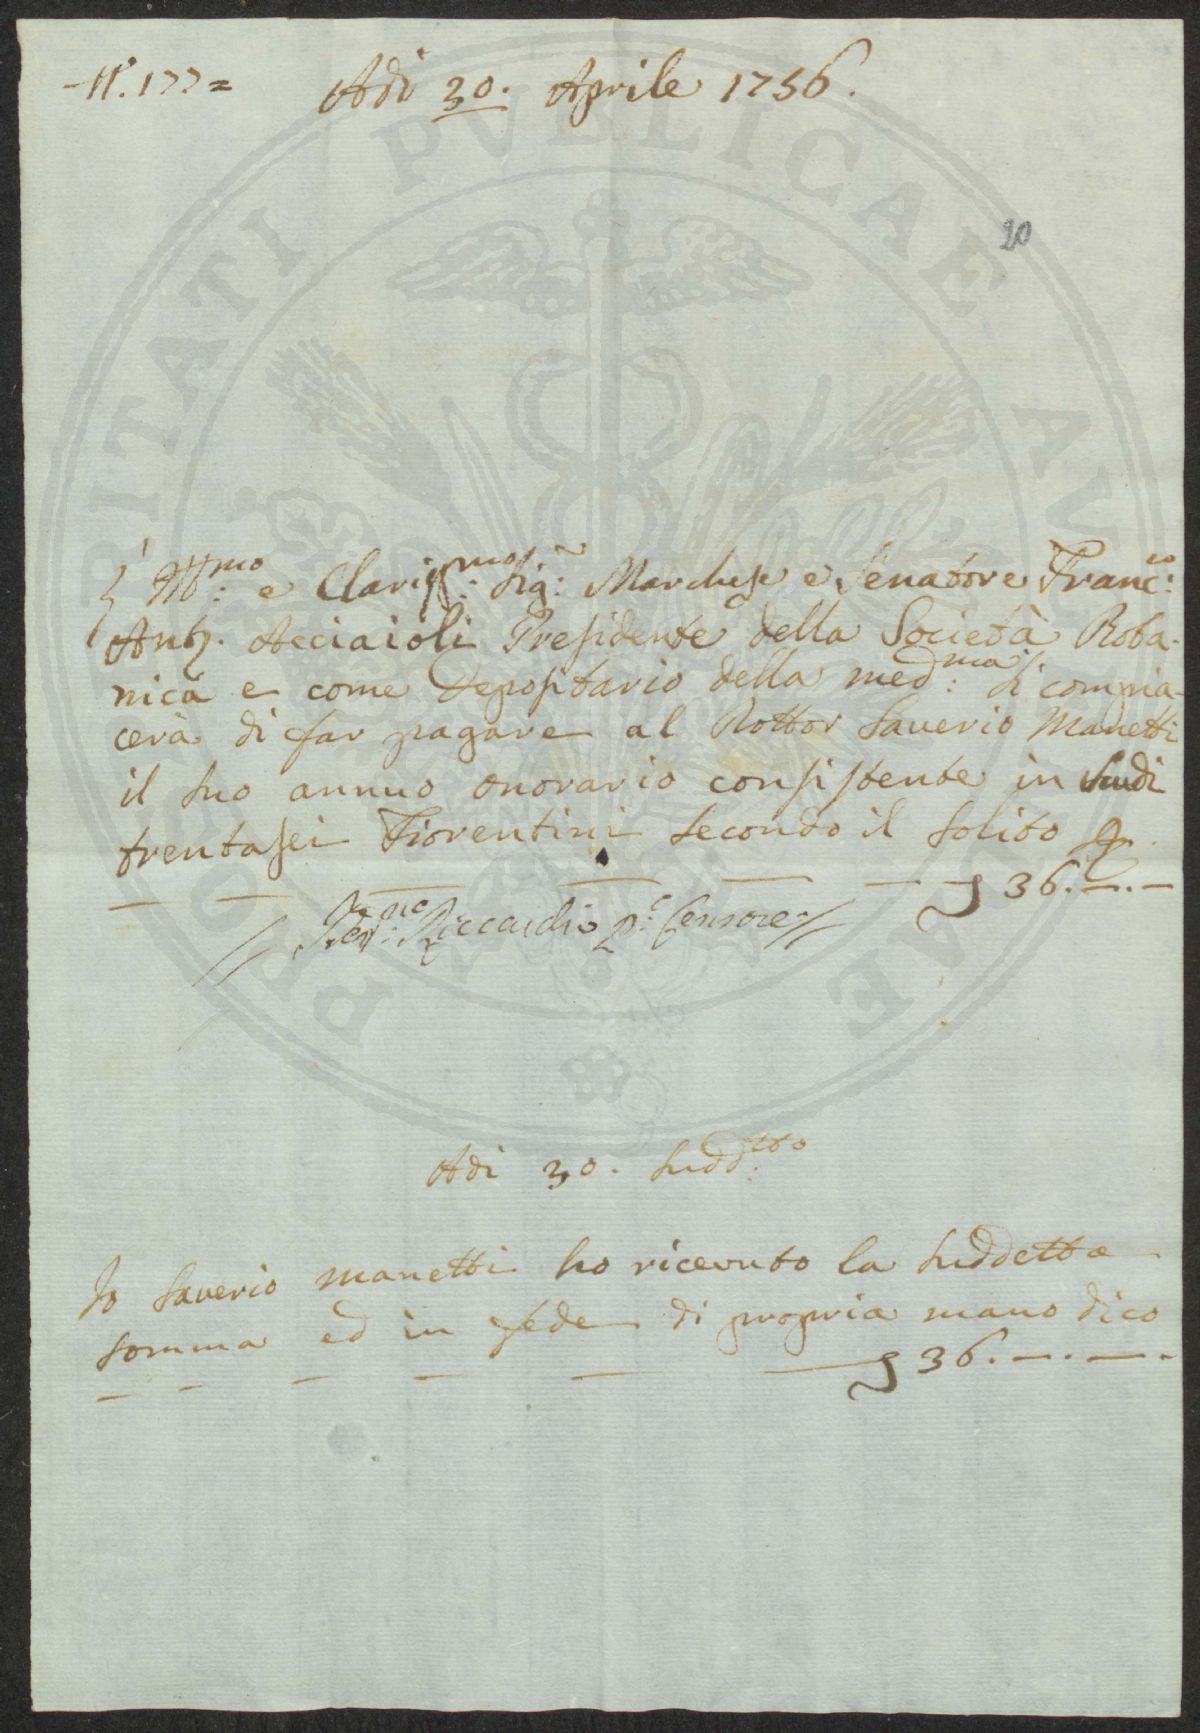 N.° 177 =
Adì 30. Aprile 1756.
20
L' Ill.mo e Clariss.mo Sig.: Marchese e Senatore Franc.co:
Ant. Acciaioli Presidente della Società Bota-
nica e come Depositario della med.ma si compia-
cerà di far pagare al Dottor Saverio Manetti
il suo annuo onorario consistente in scudi
trentasei Fiorentini secondo il solito
36. —. —
Riccardi p.e Censore
Adi 30. sudd.tto
Io Saverio Manetti ho ricevuto la suddetta
somma ed in fede di propria mano dico
36. —. —.
PROSPERITATI PVBLICAE AVGENDAE